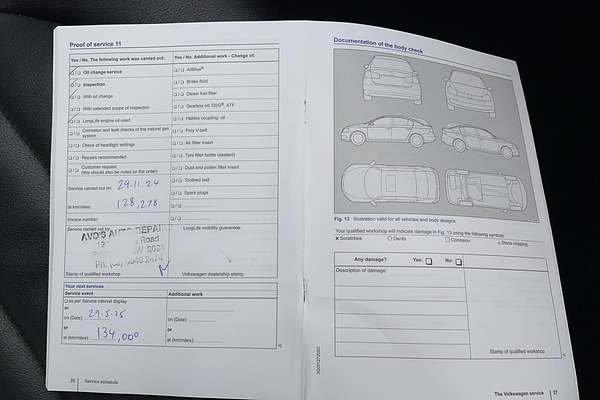 Proof of service 11
Yes / No, The following work was carried out:
Oil change service
Inspection
With oil change
With extended scope of inspection
LongLife engine oil used
Corrosion and leak checks of the natural gas system
Check of headlight settings
Repairs recommended
Customer request
(this should also be noted on the order)
Service carried out on: 29.11.24
at km/miles: 128,278
Invoice number:
Service carried out by:
AVO'S AUTO REPAI
Road
Stamp of qualified workshop
Yes / No, Additional work - Change of:
AdBlue®
Brake fluid
Diesel fuel filter
Gearbox oil: DSG®, ATF
Haldex coupling: oil
Poly V-belt
Air filter insert
Tyre filler bottle (sealant)
Dust and pollen filter insert
Toothed belt
Spark plugs
LongLife mobility guarantee:
Volkswagen dealership stamp
Your next services
Service event
as per Service interval display
or
on (Date): 29.5.25
or
at (km/miles): 134,000
Additional work
on (Date):
or
at (km/miles):
Service schedule
Documentation of the body check
Fig. 13 Illustration valid for all vehicles and body designs.
Your qualified workshop will indicate damage in Fig. 13 using the following symbols:
x Scratches
○ Dents
□ Corrosion
Stone chipping
Any damage? Yes: No:
Description of damage:
Stamp of qualified workshop
The Volkswagen service 27